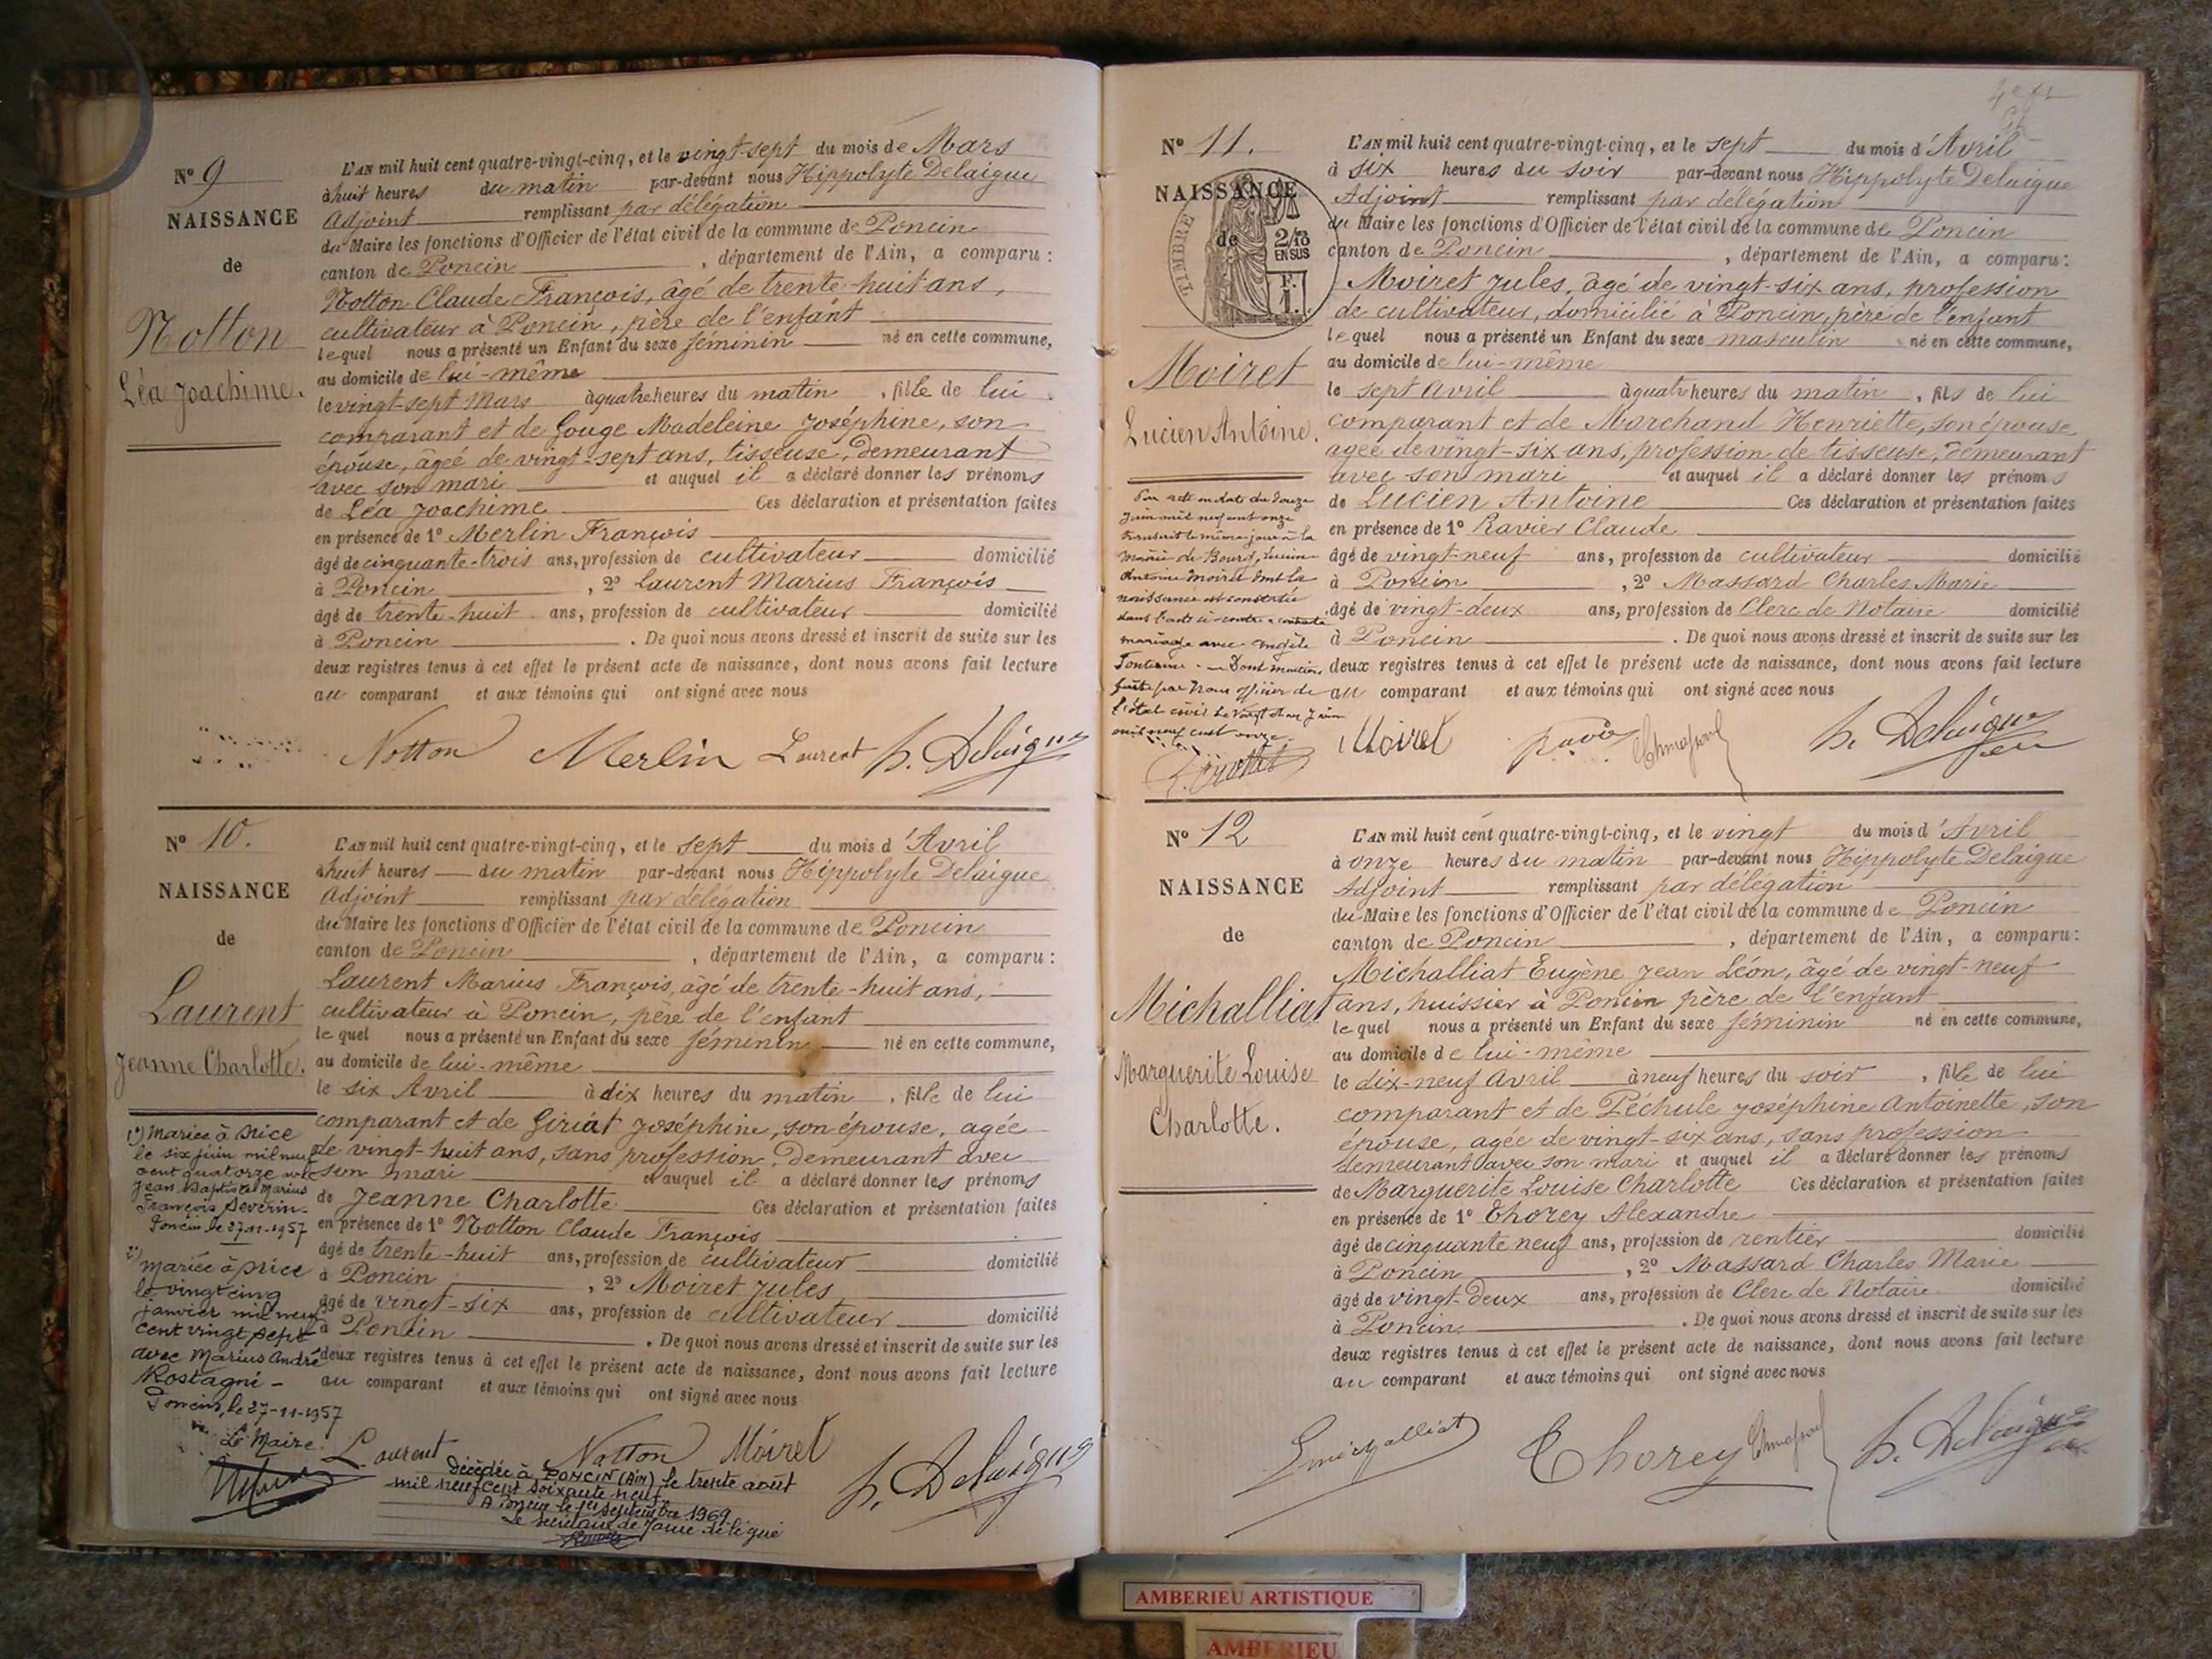 Nº 9
NAISSANCE
de
Notton
Léa Joachime.
L'AN mil huit cent quatre-vingt-cinq, et le vingt-sept du mois de Mars
à huit heures du matin par-devant nous Hippolyte Delaigue
Adjoint remplissant par délégation
du Maire les fonctions d'Officier de l'état civil de la commune de Poncin
canton de Poncin, département de l'Ain, a comparu :
Notton Claude François, âgé de trente-huit ans,
cultivateur à Poncin, père de l'enfant
lequel nous a présenté un Enfant du sexe féminin né en cette commune,
au domicile de lui-même
le vingt-sept Mars à quatre heures du matin, fille de lui
comparant et de Gouge Madeleine Joséphine, son
épouse, âgée de vingt-sept ans, tisseuse, demeurant
avec son mari et auquel il a déclaré donner les prénoms
de Léa Joachime Ces déclaration et présentation faites
en présence de 1º Merlin François
âgé de cinquante-trois ans, profession de cultivateur domicilié
à Poncin, 2º Laurent Marius François
âgé de trente-huit ans, profession de cultivateur domicilié
à Poncin. De quoi nous avons dressé et inscrit de suite sur les
deux registres tenus à cet effet le présent acte de naissance, dont nous avons fait lecture
au comparant et aux témoins qui ont signé avec nous
Notton Merlin Laurent h. Delaigue
Nº 10.
NAISSANCE
de
Laurent
Jeanne Charlotte.
1º) Mariée à Nice
le six juin mil neuf
cent quatorze avec
Jean Baptiste Marius
François Severin.
Poncin le 27-11-1957
2º)
Mariée à Nice
le vingt cinq
janvier mil neuf
cent vingt sept
avec Marius André
Rostagni -
Poncin, le 27-11-1957
Le Maire.
L'AN mil huit cent quatre-vingt-cinq, et le sept du mois d'Avril
à huit heures du matin par-devant nous Hippolyte Delaigue
Adjoint remplissant par délégation
du Maire les fonctions d'Officier de l'état civil de la commune de Poncin
canton de Poncin, département de l'Ain, a comparu :
Laurent Marius François, âgé de trente-huit ans,
cultivateur à Poncin, père de l'enfant
le quel nous a présenté un Enfant du sexe féminin né en cette commune,
au domicile de lui-même
le six Avril à dix heures du matin, fille de lui
comparant et de Giriat Joséphine, son épouse, agée
de vingt-huit ans, sans profession, demeurant avec
son mari et auquel il a déclaré donner les prénoms
de Jeanne Charlotte. Ces déclaration et présentation faites
en présence de 1º Notton Claude François
âgé de trente-huit ans, profession de cultivateur domicilié
à Poncin, 2º Moiret Jules
âgé de vingt-six ans, profession de cultivateur domicilié
à Poncin. De quoi nous avons dressé et inscrit de suite sur les
deux registres tenus à cet effet le présent acte de naissance, dont nous avons fait lecture
au comparant et aux témoins qui ont signé avec nous
Laurent Notton Moiret h. Delaigue
Décédée à PONCIN (Ain) le trente août
mil neuf cent soixante neuf
A Poncin le 1er septembre 1969
Le secrétaire de Mairie délégué
Nº 11.
NAISSANCE
de
TIMBRE
2/10
EN SUS
F.
1.
Moiret
Lucien Antoine.
Par acte en date du douze
Juin mil neuf cent onze
transcrit le même jour à la
mairie de Bourg, Lucien
Antoine Moiret dont la
naissance est constatée
dans l'acte ci-contre a contracté
mariage avec
Fontaine. - Dont mention
faite par Nous officier de
l'état civil le vingt Juin
mil neuf cent onze.
L'AN mil huit cent quatre-vingt-cinq, et le sept du mois d'Avril
à six heures du soir par-devant nous Hippolyte Delaigue
Adjoint remplissant par délégation
du Maire les fonctions d'Officier de l'état civil de la commune de Poncin
canton de Poncin, département de l'Ain, a comparu :
Moiret Jules, âgé de vingt-six ans, profession
de cultivateur, domicilié à Poncin, père de l'enfant
lequel nous a présenté un Enfant du sexe masculin né en cette commune,
au domicile de lui-même
le sept avril à quatre heures du matin, fils de lui
comparant et de Marchand Henriette, son épouse
agée de vingt-six ans, profession de tisseuse, demeurant
avec son mari et auquel il a déclaré donner les prénoms
de Lucien Antoine Ces déclaration et présentation faites
en présence de 1º Ravier Claude
âgé de vingt-neuf ans, profession de cultivateur domicilié
à Poncin, 2º Massard Charles Marie
âgé de vingt-deux ans, profession de Clerc de Notaire domicilié
à Poncin. De quoi nous avons dressé et inscrit de suite sur les
deux registres tenus à cet effet le présent acte de naissance, dont nous avons fait lecture
au comparant et aux témoins qui ont signé avec nous
Moiret h. Delaigue
Nº 12
NAISSANCE
de
Michalliat
Marguerite Louise
Charlotte.
L'AN mil huit cent quatre-vingt-cinq, et le vingt du mois d'Avril
à onze heures du matin par-devant nous Hippolyte Delaigue
Adjoint remplissant par délégation
du Maire les fonctions d'Officier de l'état civil de la commune de Poncin
canton de Poncin, département de l'Ain, a comparu :
Michalliat Eugène Jean Léon, âgé de vingt-neuf
ans, huissier à Poncin père de l'enfant
le quel nous a présenté un Enfant du sexe féminin né en cette commune,
au domicile de lui-même
le dix-neuf Avril à neuf heures du soir, fille de lui
comparant et de Péchule Joséphine Antoinette, son
épouse, agée de vingt-six ans, sans profession
demeurant avec son mari et auquel il a déclaré donner les prénoms
de Marguerite Louise Charlotte Ces déclaration et présentation faites
en présence de 1º Thorey Alexandre
âgé de cinquante neuf ans, profession de rentier domicilié
à Poncin, 2º Massard Charles Marie
âgé de vingt-deux ans, profession de Clerc de Notaire domicilié
à Poncin. De quoi nous avons dressé et inscrit de suite sur les
deux registres tenus à cet effet le présent acte de naissance, dont nous avons fait lecture
au comparant et aux témoins qui ont signé avec nous
Michalliat Thorey h. Delaigue
AMBERIEU ARTISTIQUE
AMBERIEU